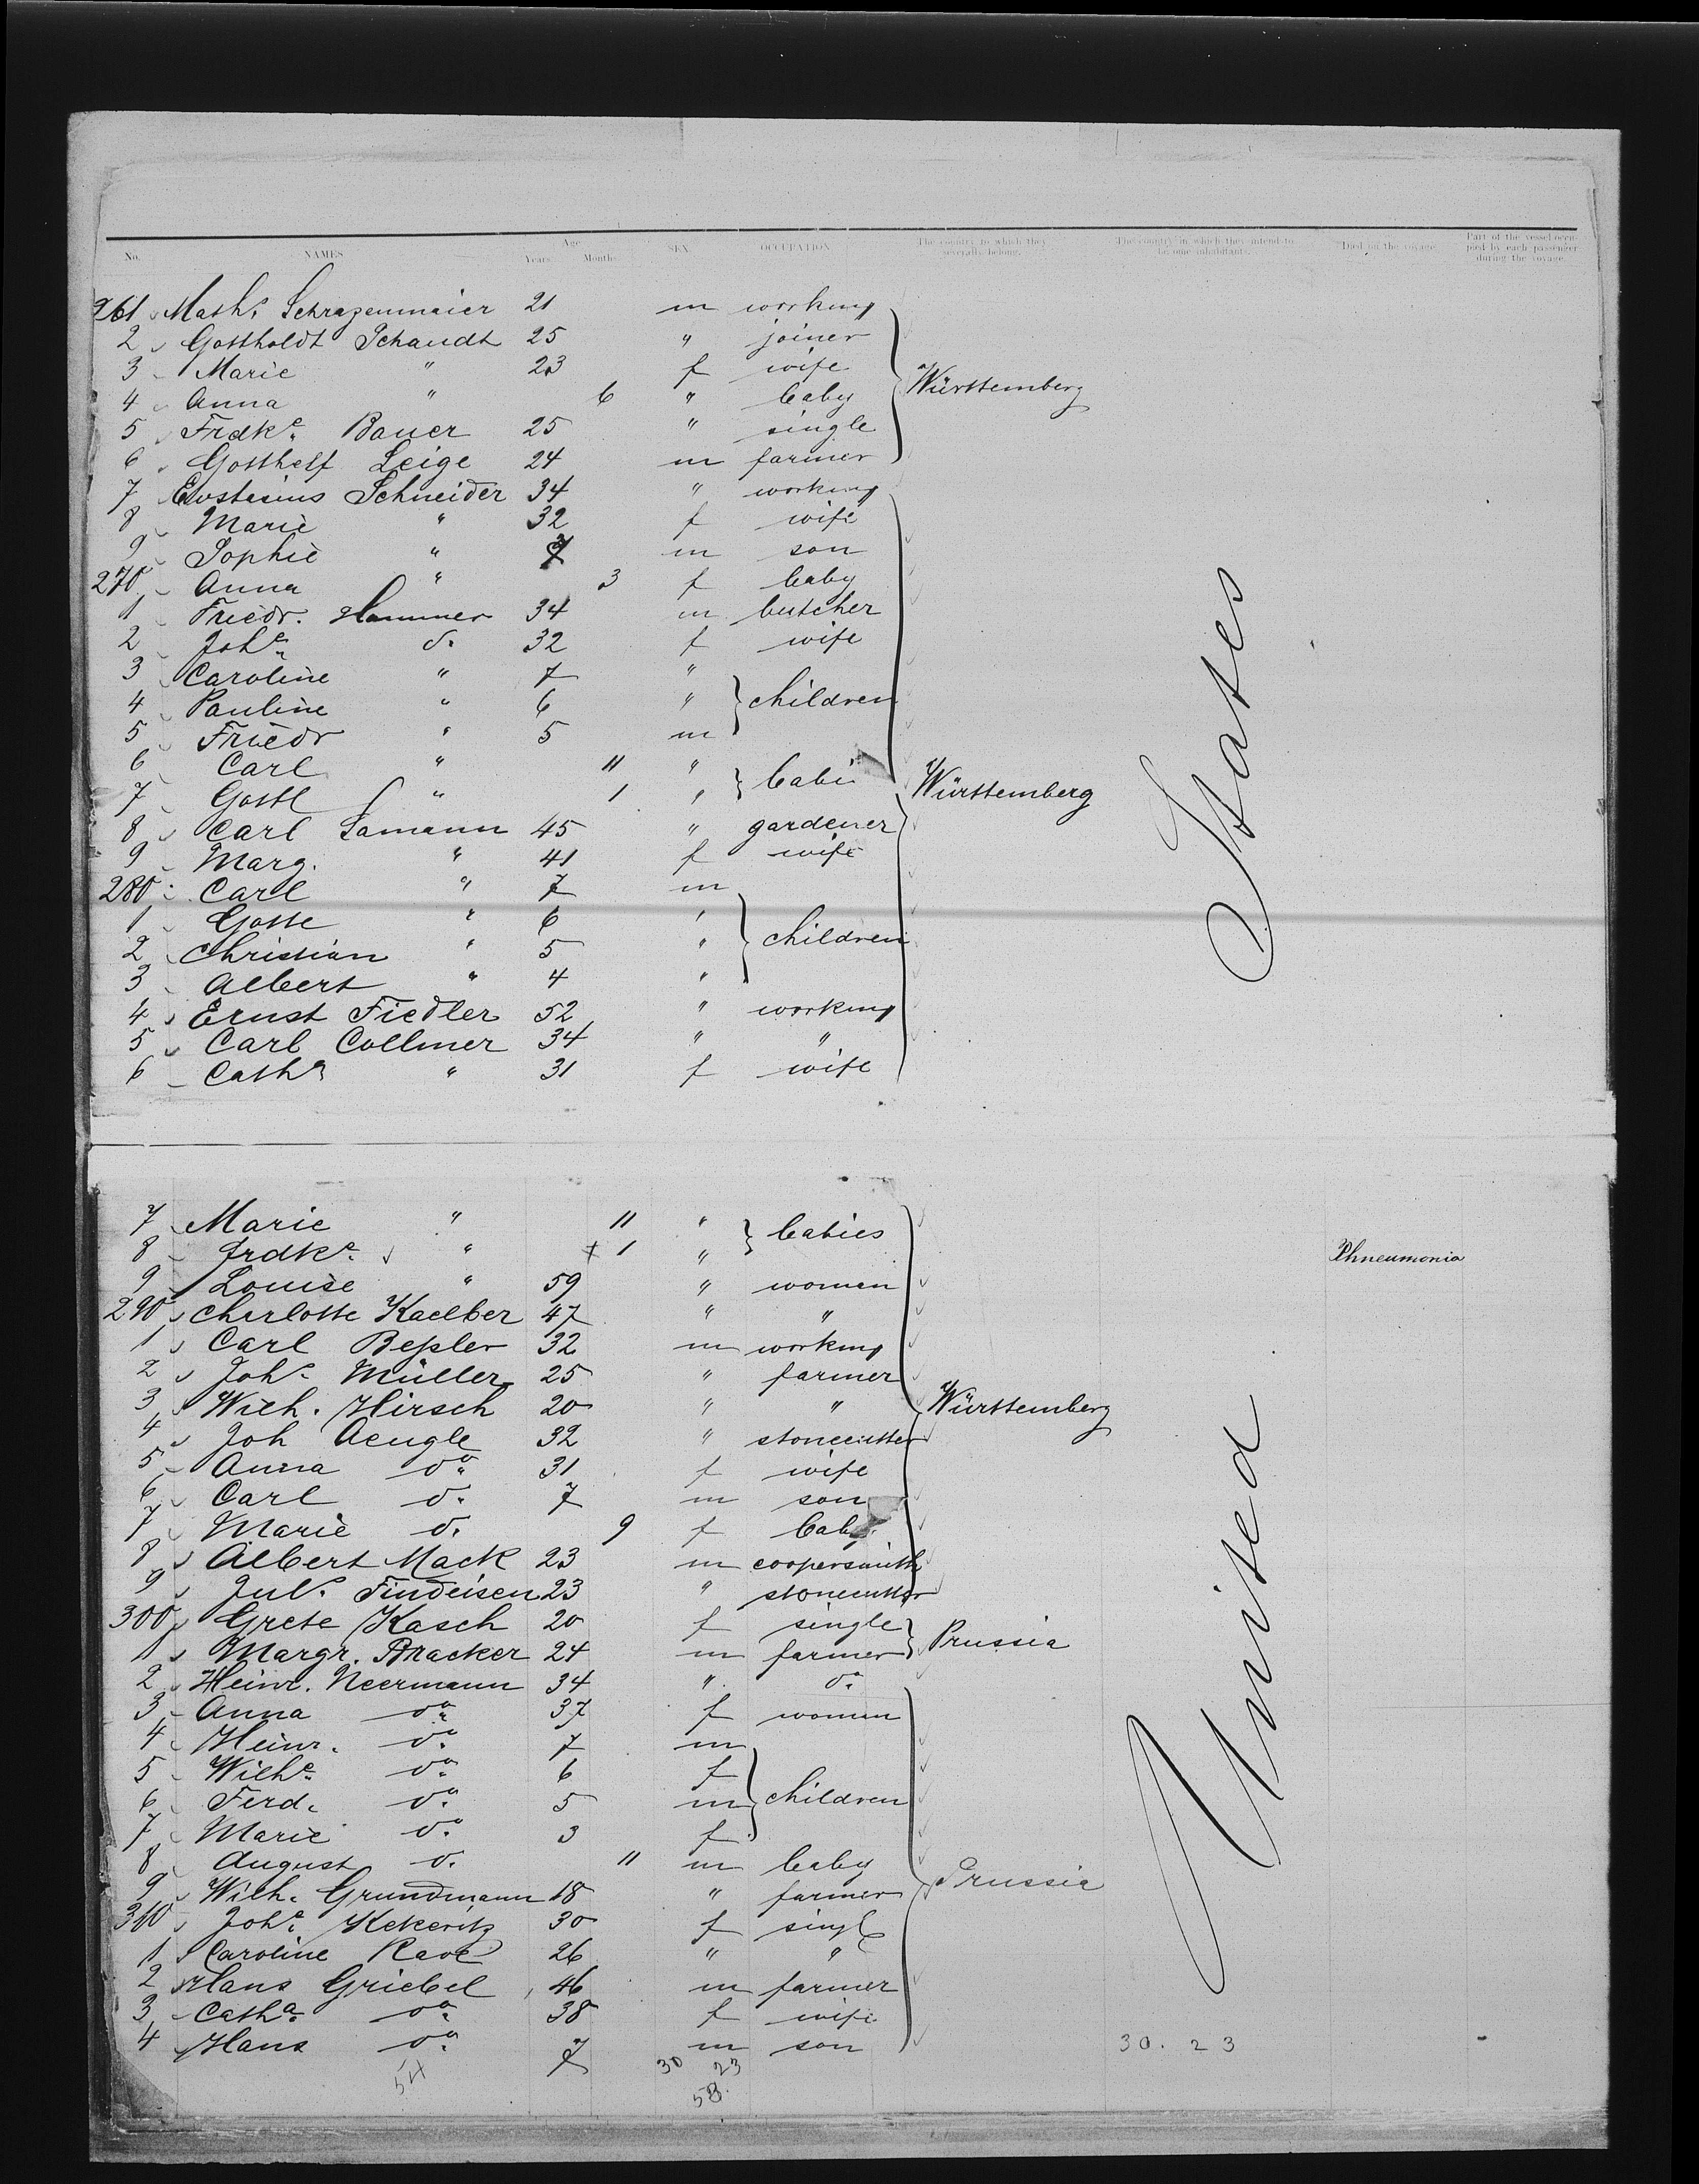 No. NAMES Age Years Months SEX. OCCUPATION The country to which they severally belong. The country in which they intend to become inhabitants. Died on the voyage. Part of the vessel occupied by each passenger during the voyage.
261 Maths Schrazenmaier 21 m working
2 Gottholdt Schaudt 25 " joiner
3 Marie " 23 f wife
4 Anna " 6 " baby Württemberg
5 Frdke Bauer 25 " single
6 Gotthelf Leige 24 m farmer
7 Eustasius Schneider 34 " working
8 Marie " 32 f wife
9 Sophie " m son
270 Anna " 3 f baby
1 Friedr. Hammer 34 m butcher
2 Johe do 32 f wife
3 Caroline " 7 "
4 Pauline " 6 " children
5 Friedr " 5 m
6 Carl " 11 "
7 Gottl " 1 " babie Württemberg
8 Carl Lamann 45 " gardener
9 Marg. " 41 f wife
280 Carl " 7 m
1 Gotte " 6 "
2 Christian " 5 " children
3 Albert " 4 "
4 Ernst Fiedler 52 " working
5 Carl Collmer 34 " "
6 Catha " 31 f wife
7 Marie " 11 " babies
8 Frdke " + 1 " Phneumonia
9 Louise " 59 " women
290 Charlotte Kaelber 47 " "
1 Carl Beßler 32 m working
2 Johs Müller 25 " farmer
3 Wilh. Hirsch 20 " " Württemberg
4 Joh Aeugle 32 " stonecutter
5 Anna do 31 f wife
6 Carl do 7 m son
7 Marie do 9 f baby
8 Albert Mack 23 m coopersmith
9 Juls Findeisen 23 " stonecutter
300 Grete Kasch 20 f single
1 Margr. Bracker 24 m farmer Prussia
2 Heinr. Neermann 34 " do
3 Anna do 37 f women
4 Heinr. do 7 m
5 Wilhe do 6 f
6 Ferd. do 5 m children
7 Marie do 3 f
8 August do 11 m baby
9 Wilh. Grundmann 18 " farmer Prussia
310 Johe Kekeritz 30 f single
1 Caroline Rave 26 " "
2 Hans Griebel 46 m farmer
3 Catha do 38 f wife
4 Hans do 7 m son 30. 23
54 30 23
58
United States